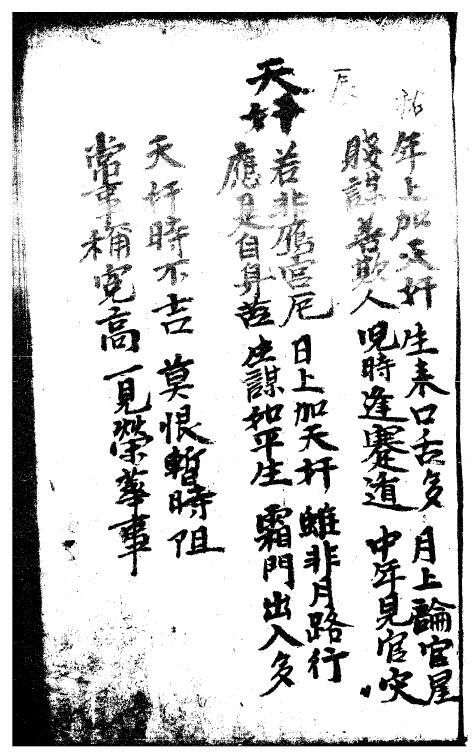 辰
天奸
年上加天奸 生来口舌多 月上論官星
賤謀善欺人 児時逢蹇道 中年見官
若非鴈宫厄 日上加天奸 雖非月路行
應是自身苦 生謀和平生 霜門出入多
天奸時不吉 莫恨暫時阻
常事稱寃高 一見榮華事